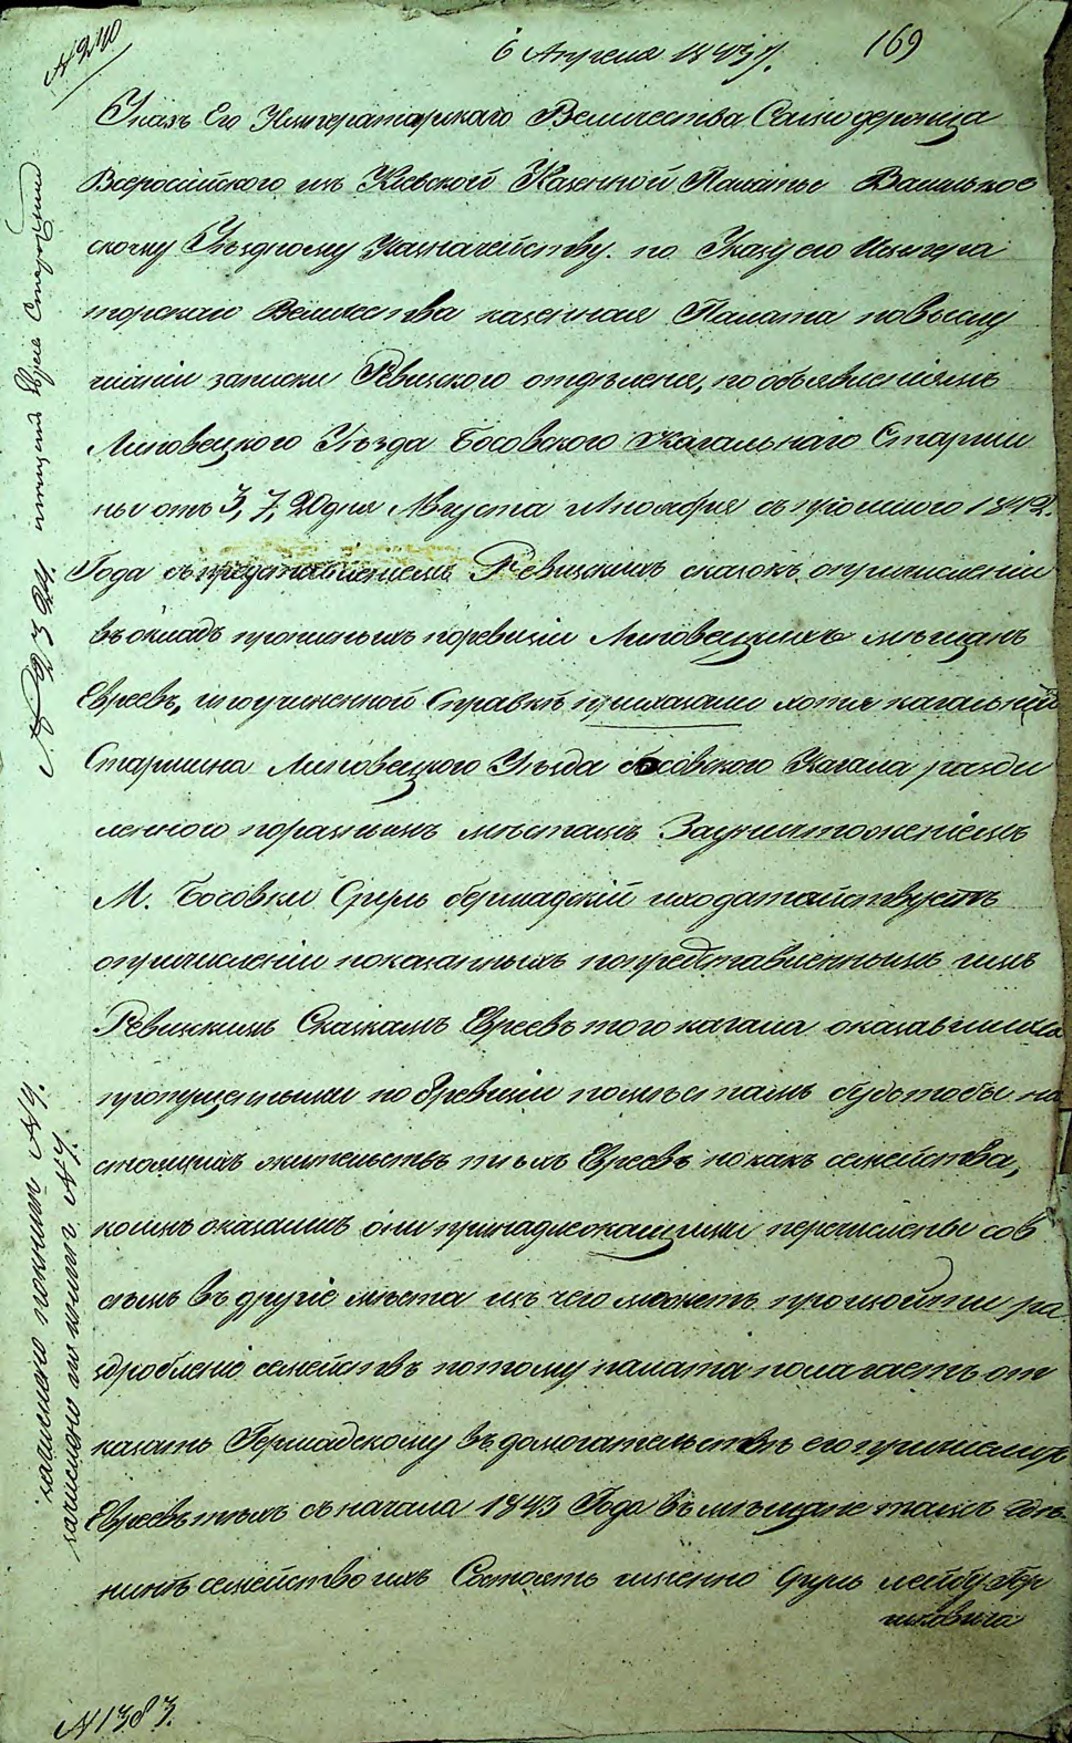 № 240
6 Апреля 1843 г. 169
Указъ Его Императорскаго Величества Самодержца
Всероссійского изъ Кіевской Казенной Палаты Васильков
скому Уездному Казначейству. по Указу его Импера
торскаго Величества казенная Палата повыслу
шаніи записки Ревизского отделенія, по объявленіямъ
Липовецкого Уезда Босовского Кагальнаго Старши
ны отъ 3, 7, 20 дня Августа съ прошлого 1842.
Года съ представленіемъ Ревизскихъ сказокъ опричисленіи
въ окладъ прописныхъ поревизіи Липовецкихъ мещанъ
Евреевъ, поучиненной Справке приказали хотя кагальный
Старшина Липовецкого Уезда босовского Кагала разде
ленного поразнымъ местамъ Зауничтоженіемъ
М. Босовки Сруль бершадскій иходатайствуетъ
опричисленіи показанныхъ попредставленнымъ имъ
Ревизскимъ Сказкамъ Евреевъ того кагала оказавшихся
пропущенными по 8 ревизіи поместамъ будьтобы на
стоящихъ жительствъ техъ Евреевъ нокакъ семейства,
коимъ оказаимъ они принадлежащими перечислены сов
семъ въ другіе места изъ чего можетъ произойти ра
здробленіе семействъ потому палата полагаетъ от
казать Бершадскому въ домогательстве его причислить
Евреевъ техъ съ начала 1843 Года въ мещане
семейство ихъ Состоятъ именно Сруль лейбу Бер
шковича
№ 1383.
№ 2324.
записано покниге № 9.
записано по книге № 7.